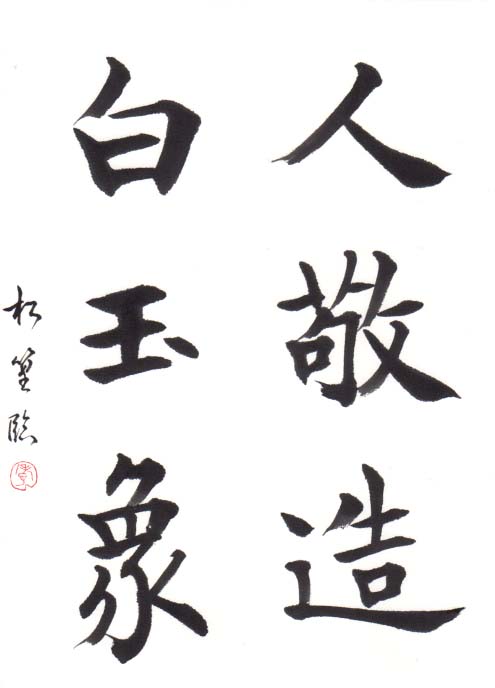 人敬造
白玉象
松臨